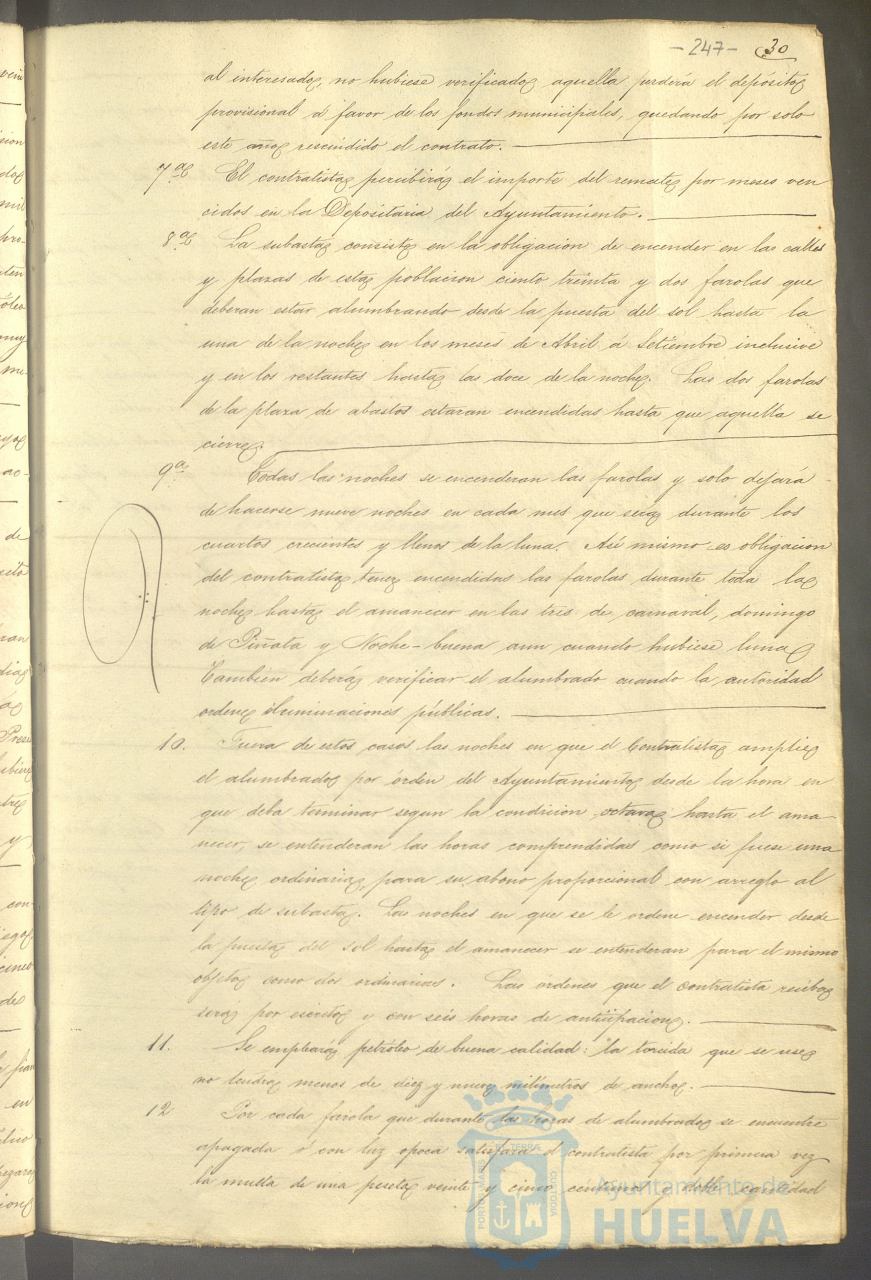 -247- 30
al interesado, no hubiese verificado aquella perderá el depósito
provisional á favor de los fondos municipales, quedando por solo
este año rescindido el contrato.
7ª El contratista percibirá el importe del remate por meses ven
cidos en la Depositaria del Ayuntamiento.
8ª La subasta consiste en la obligacion de encender en las calles
y plazas de esta poblacion ciento treinta y dos farolas que
deberan estar alumbrando desde la puesta del sol hasta la
una de la noche en los meses de Abril á Setiembre inclusive
y en los restantes hasta las doce de la noche. Las dos farolas
de la plaza de abastos estaran encendidas hasta que aquella se
cierre.
9ª Todas las noches se encenderan las farolas y solo dejará
de hacerse nueve noches en cada mes que será durante los
cuartos crecientes y llenos de la luna. Asi mismo es obligacion
del contratista tener encendidas las farolas durante toda la
noche hasta el amanecer en las tres de carnaval, domingo
de Piñata y Noche-buena aun cuando hubiese luna
Tambien deberá verificar el alumbrado cuando la autoridad
ordene iluminaciones públicas.
10. Fuera de estos casos las noches en que el Contratista amplie
el alumbrado por órden del Ayuntamiento desde la hora en
que deba terminar segun la condicion octava hasta el ama-
necer, se entenderan las horas comprendidas como si fuese una
noche ordinaria, para su abono proporcional con arreglo al
tipo de subasta. Las noches en que se le ordene encender desde
la puesta del sol hasta el amanecer se entenderan para el mismo
objeto como dos ordinarias. Las órdenes que el contratista reciba
será por escrito y con seis horas de anticipacion.
11. Se empleará petróleo de buena calidad: la torcida que se use
no tendrá menos de diez y nueve milímetros de ancho.
12 Por cada farola que durante las horas de alumbrado se encuentre
apagada ó con luz opaca satisfará el contratista por primera vez
la multa de una peseta veinte y cinco céntimos y doble cantidad
Ayuntamiento de
HUELVA